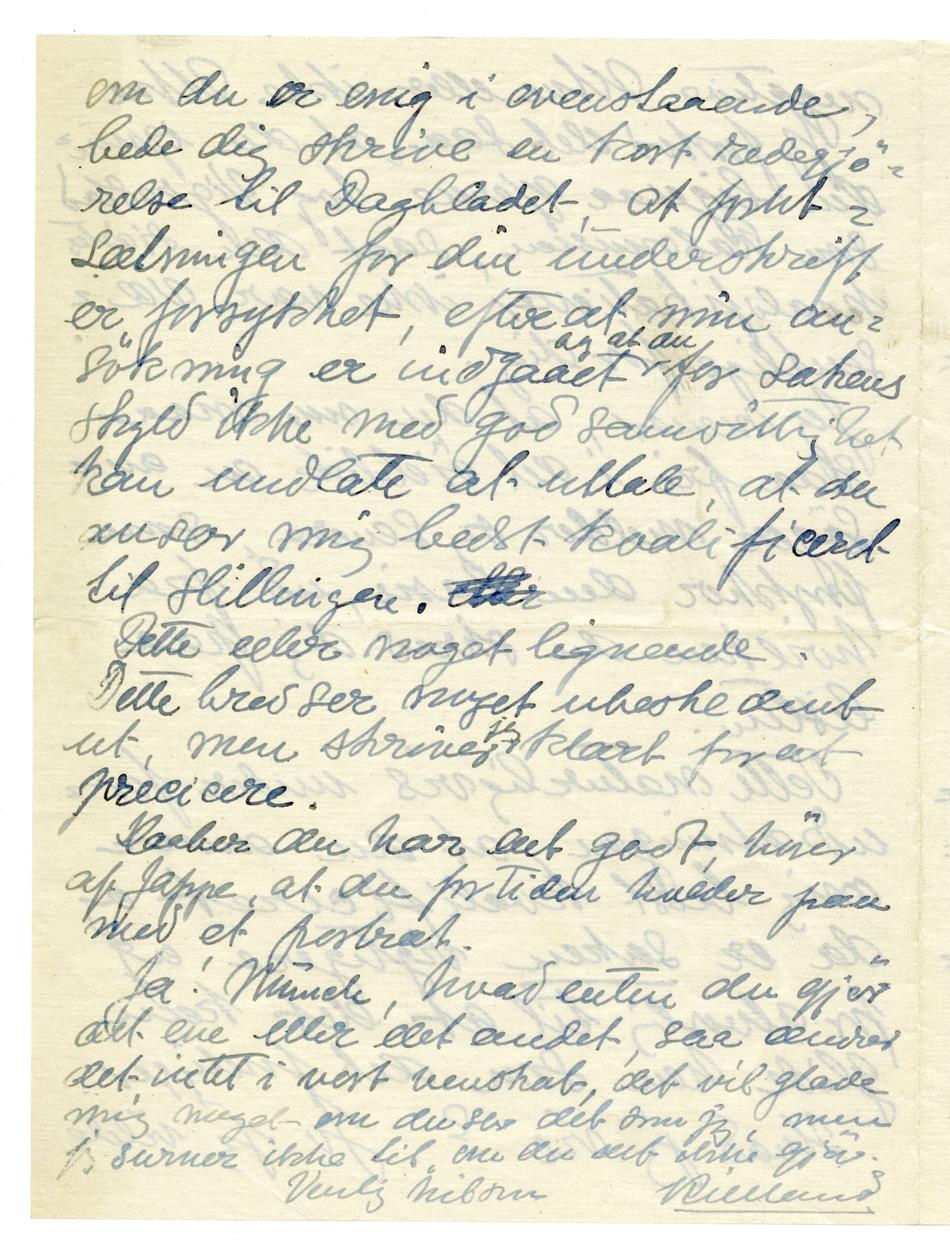 om du er enig i ovenstaaende,
bede dig skrive en kort redegjö=
relse til Dagbladet, at forut=
sætningen for din underskrift
er forrykket, efterat min an=
sökning er indgaaet og at du for sakens
skyld ikke med god samvittighet
kan undlate at uttale, at du
anser mig bedst kvalificeret
til stillingen.
Dette eller noget lignende.
Dette brev ser noget ubeskedent
ut, men skriver jeg klart for at
precicere.
Haaber du har det godt, hörer
af Jappe, at du for tiden holder paa
med et portræt.
Ja! Münch, hvad enten du gjör
det ene eller det andet, saa ændrer
det intet i vort venskab, det vil glæde
mig meget om du ser det som jeg, men
jeg surner ikke til om du det ikke gjör.
Venlig hilsen Kielland